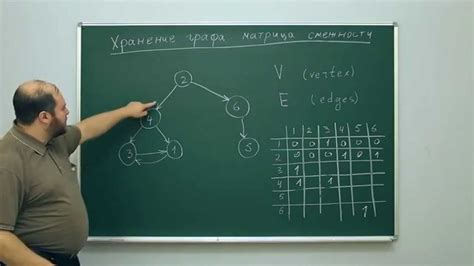 Хранение графа матрица смежности
2
4
6
3
1
5
V (vertex)
E (edges)
1 2 3 4 5 6
1 0 0 1 0 0 0
2 0 0 0 1 0 1
3 1
4 1 1
5
6 1